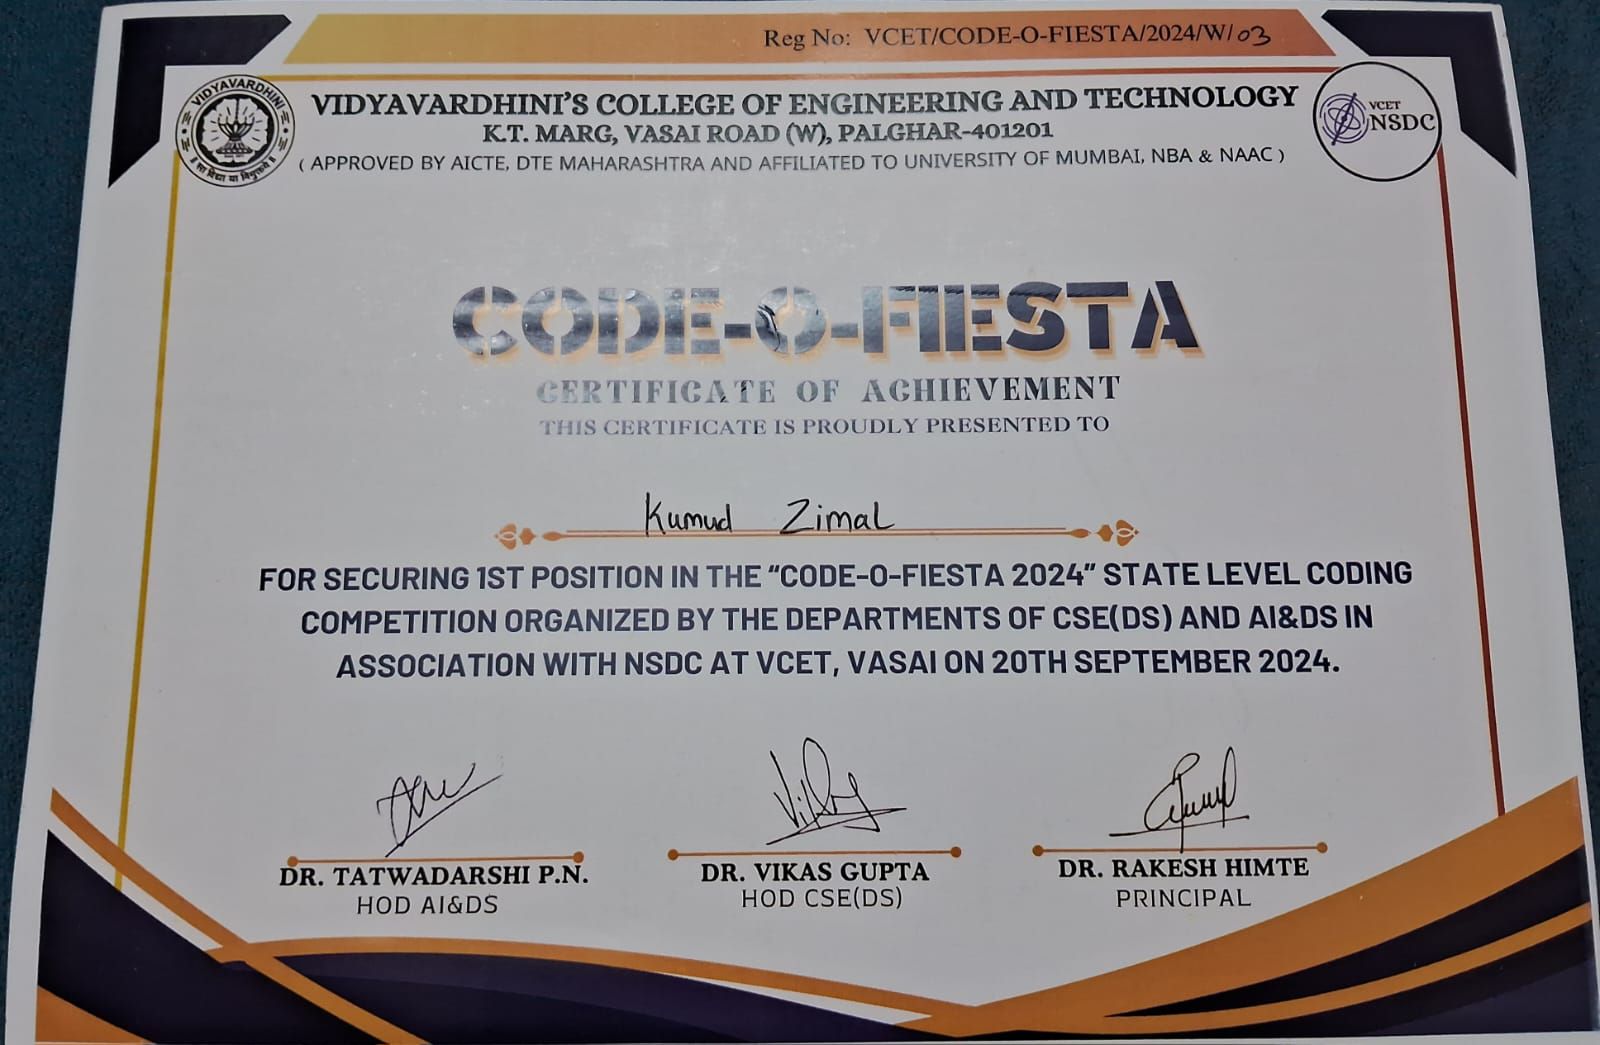 Reg No: VCET/CODE-O-FIESTA/2024/W/03
VIDYAVARDHINI
VIDYAVARDHINI'S COLLEGE OF ENGINEERING AND TECHNOLOGY
K.T. MARG, VASAI ROAD (W), PALGHAR-401201
( APPROVED BY AICTE, DTE MAHARASHTRA AND AFFILIATED TO UNIVERSITY OF MUMBAI, NBA & NAAC )
VCET
NSDC
CODE-O-FIESTA
CERTIFICATE OF ACHIEVEMENT
THIS CERTIFICATE IS PROUDLY PRESENTED TO
Kumud Zimal
FOR SECURING 1ST POSITION IN THE “CODE-O-FIESTA 2024” STATE LEVEL CODING
COMPETITION ORGANIZED BY THE DEPARTMENTS OF CSE(DS) AND AI&DS IN
ASSOCIATION WITH NSDC AT VCET, VASAI ON 20TH SEPTEMBER 2024.
DR. TATWADARSHI P.N.
HOD AI&DS
DR. VIKAS GUPTA
HOD CSE(DS)
DR. RAKESH HIMTE
PRINCIPAL